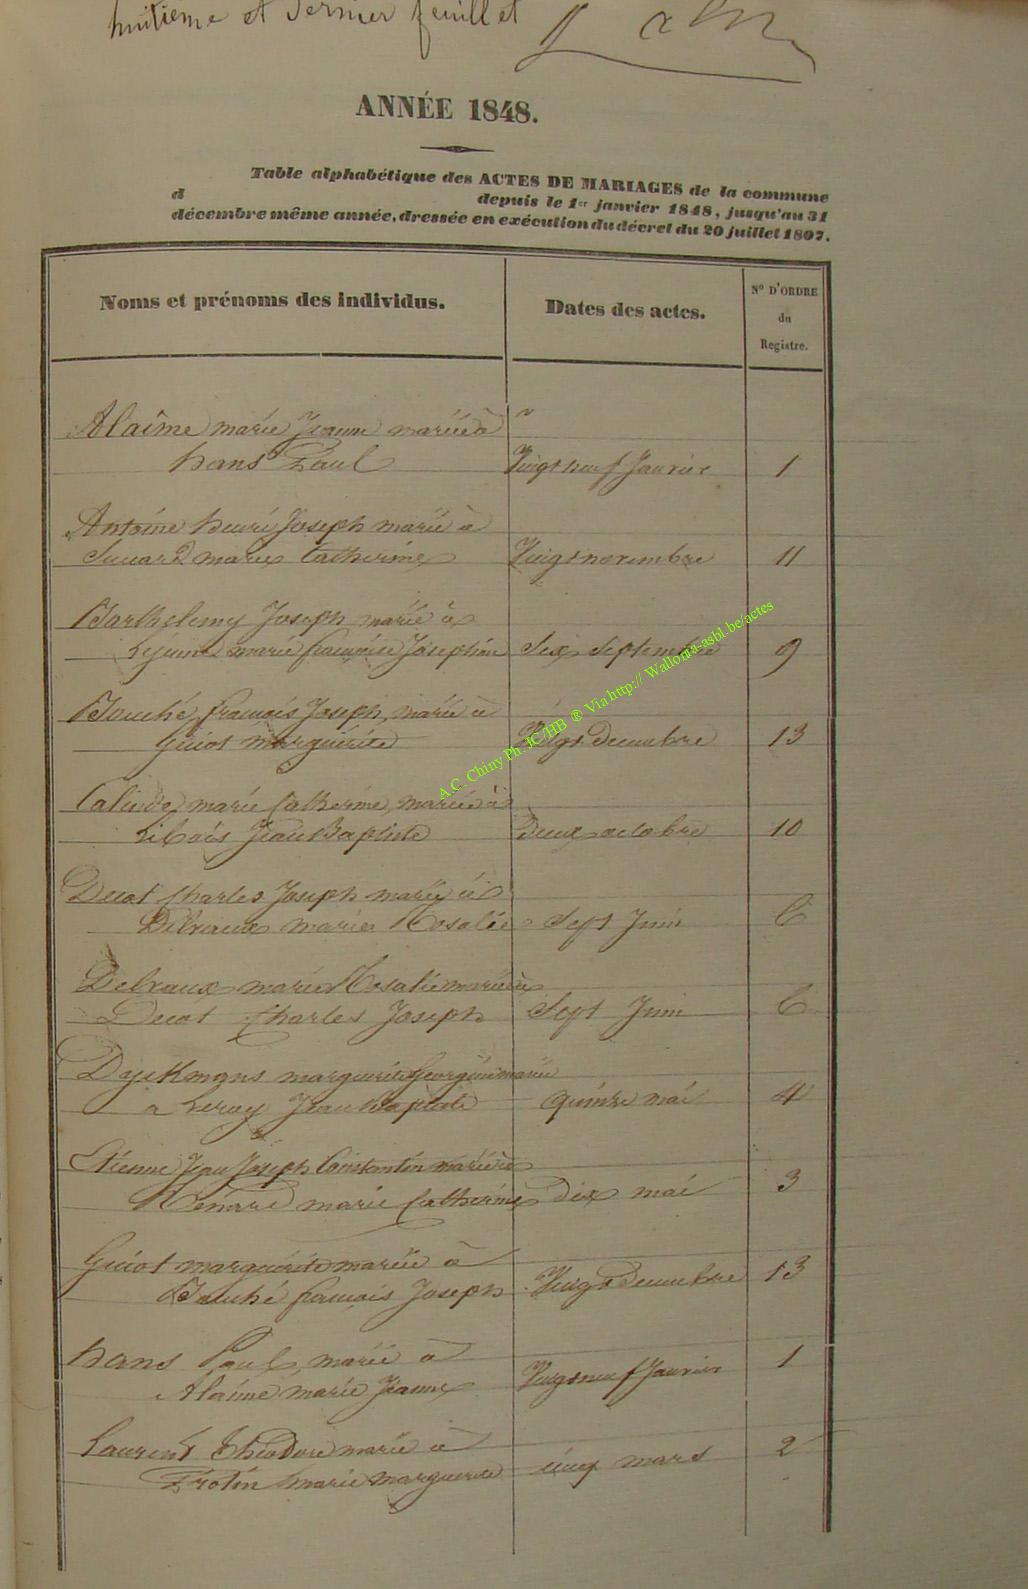 huitième et dernier feuillet
ANNÉE 1848.
Table alphabétique des ACTES DE MARIAGES de la commune
d depuis le 1er janvier 1848, jusqu'au 31
décembre même année, dressée en exécution du décret du 20 juillet 1807.
Noms et prénoms des individus. Dates des actes. N° D'ORDRE du Registre.
Alaîme marie Jeanne mariée à "
hans Paul Vingt neuf Janvier 1
Antoine henri Joseph marié à
Suward marie Catherine Vingt novembre 11
Barthelemy Joseph marié à
Lejeune marie françoise Joséphine Six Septembre 9
Bouché françois Joseph, marié à
Guiot marguérite Vingt Decembre 13
marie Catherine, mariée à
Libois Jean Baptiste Deux octobre 10
Decot Charles Joseph marié à
Delvaux marie Rosalie Sept Juin 6
Delvaux marie Rosalie mariée à
Decot Charles Joseph Sept Juin 6
Dyckmans marguerite Georgine mariée
a Leroy Jean Baptiste quinze mai 4
Etienne Jean Joseph Constantin marié à
Renard marie Catherine dix mai 3
Guiot marguérite mariée à
Bouché francois Joseph Vingt Decembre 13
hans Paul, marié à
Alaime marie Jeanne Vingt neuf Janvier 1
Laurent Théodore marié à
Protin marie marguerite cinq mars 2
A.C. Chiny Ph. JC/HB ® Via http:// Wallonia-asbl.be/actes